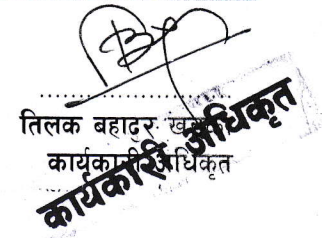 तिलक बहादुर
कार्यकारी अधिकृत
कार्यकारी अधिकृत